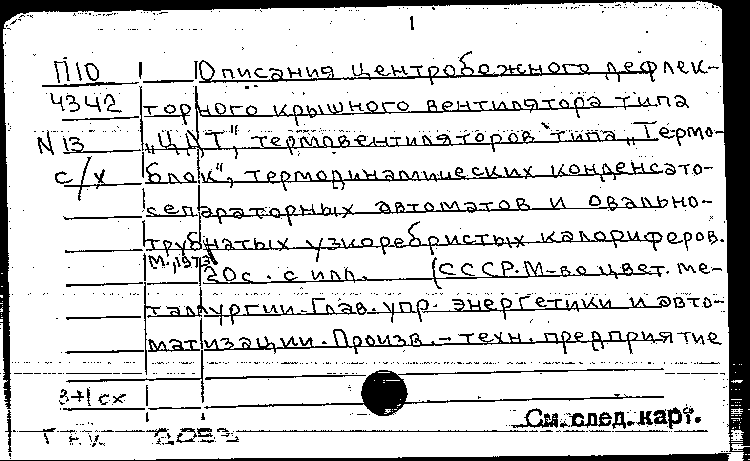 1
П10 Описания центробежного дефлек-
4342 торного крышного вентилятора типа
N13 „ЦДТ", термовентиляторов типа „Термо-
с/х блок", термодинамических конденсато-
сепараторных автоматов и овально-
трубчатых узкоребристых калориферов.
М., 1973
20с. с илл. (СССР. М-во цвет. ме-
таллургии. Глав. упр. энергетики и авто-
матизации. Произв.-техн. предприятие
3+1 сх
См. след. карт.